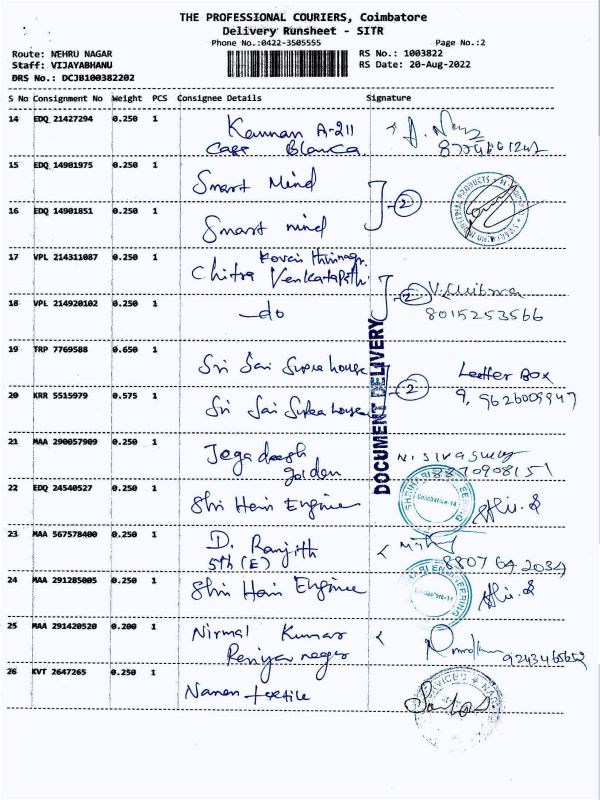 THE PROFESSIONAL COURIERS, Coimbatore
Delivery Runsheet - SITR
Phone No.:0422-3505555
Page No.:2
Route: NEHRU NAGAR
RS No.: 1003822
Staff: VIJAYABHANU
RS Date: 20-Aug-2022
DRS No.: DCJB100382202
S No Consignment No Weight PCS Consignee Details Signature
14 EDQ 21427294 0.250 1 Kannan A-211
Casa Blanca
15 EDQ 14901975 0.250 1 Smart Mind
2
16 EDQ 14901851 0.250 1 Smart mind
17 VPL 214311087 0.250 1
Chitra Venkatapathi
2
18 VPL 214920102 0.250 1 -do
8015253566
DOCUMENT DELIVERY
19 TRP 7769588 0.650 1 Sri Sai Supra house Letter Box
2
20 KRR 5515979 0.575 1 Sri Sai Supra house 9, 9626009947
21 MAA 290057909 0.250 1 Jegadeesh
golden
8870908151
22 EDQ 24540527 0.250 1 Shri Hari Engine
Coimbatore-14
23 MAA 567578400 0.250 1 D. Ranjith
5th (E) 8807642034
24 MAA 291285005 0.250 1 Shri Hari Engine
25 MAA 291420520 0.200 1 Nirmal Kumar
Periyar nagar 9243465652
26 KVT 2647265 0.250 1 Naren textile